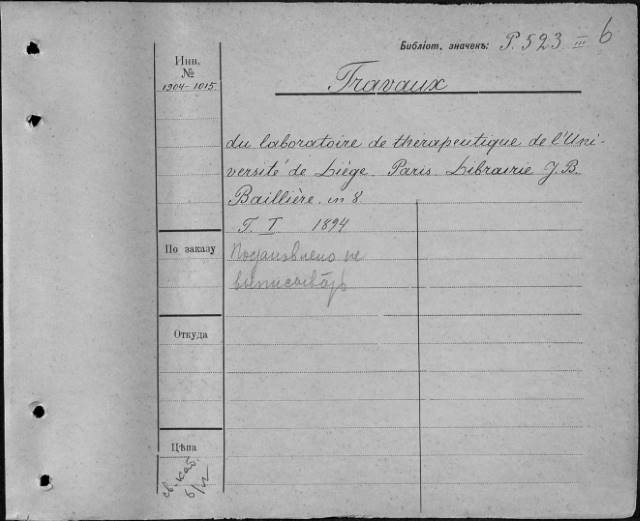 Библіот. значенъ: P. 523 III 6
Инв.
№
1904-1015.
Travaux
du laboratoire de thérapeutique de l'Uni-
versité de Liége. Paris. Librairie J. B.
Baillière. in 8.
T. I 1894
По заказу
не
выписывать
Откуда
Цѣна